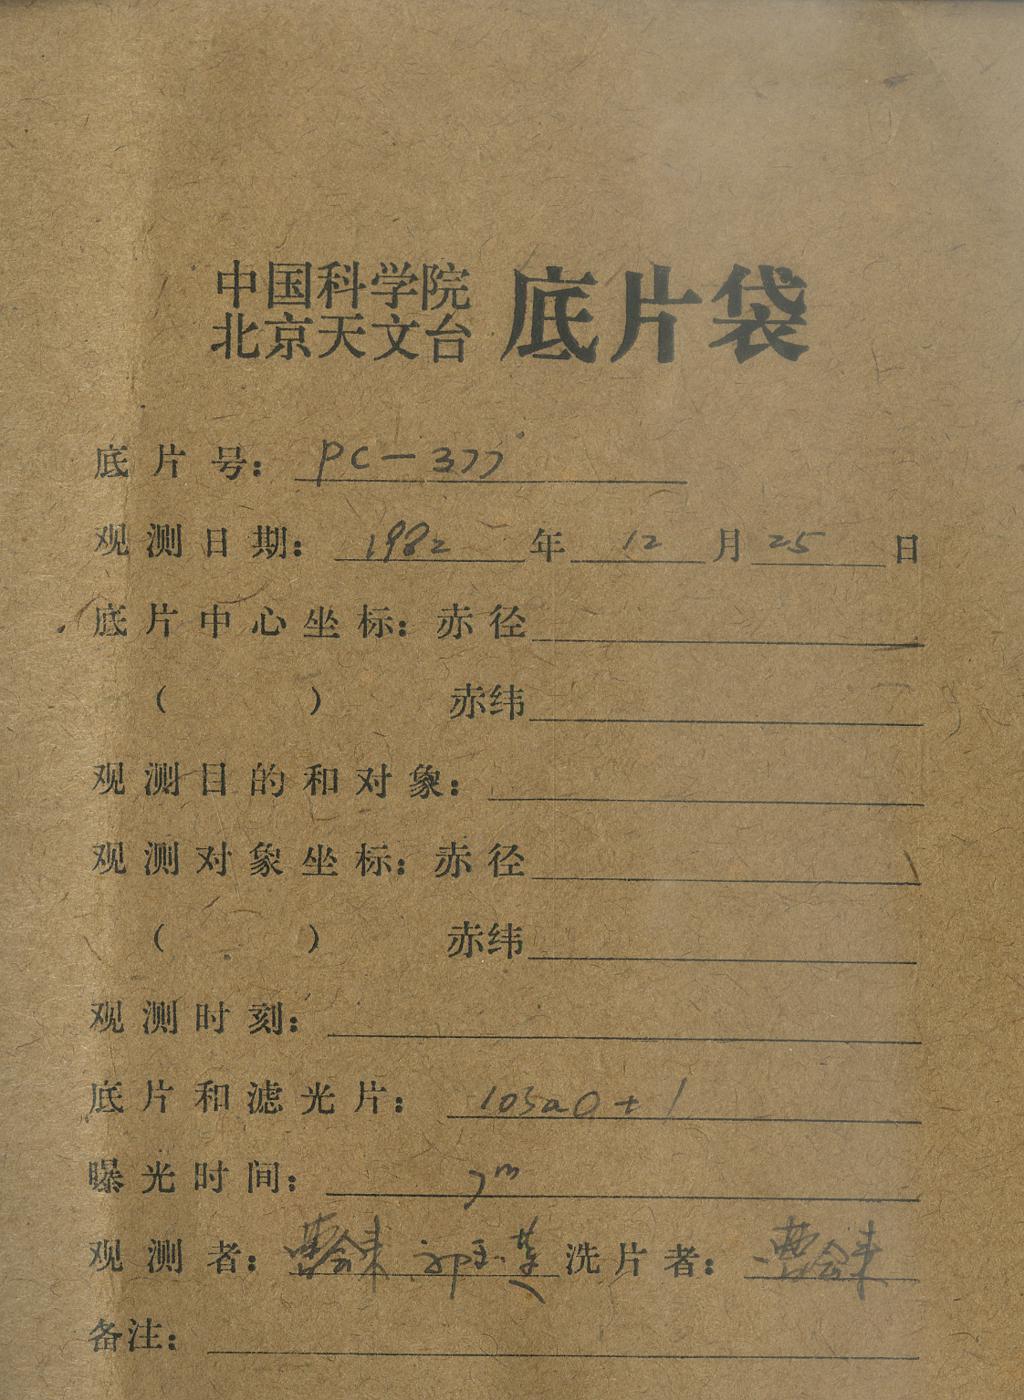 中国科学院
北京天文台 底片袋
底片号: PC-377
观测日期: 1982 年 12 月 25 日
底片中心坐标: 赤径
( ) 赤纬
观测目的和对象:
观测对象坐标: 赤径
( ) 赤纬
观测时刻:
底片和滤光片: 103aO + 1
曝光时间: 7m
观测者: 曹会来 洗片者: 曹会来
备注: